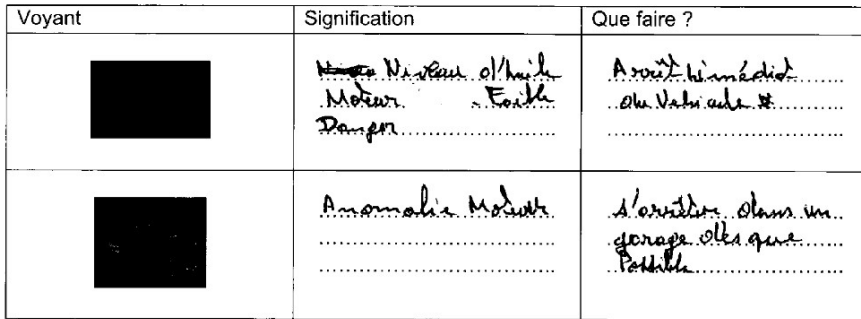 Voyant Signification Que faire ?
Niveau d'huile
Moteur Faible
Danger
Arrêt himédiat
du Vehicule
Anomalie Moteur
s'arrêter dans un
garage dès que
Possible